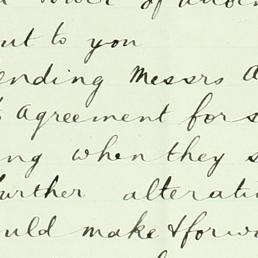 out to you
ending Messrs A
Agreement for s
ng when they s
further alterati
ould make & forw